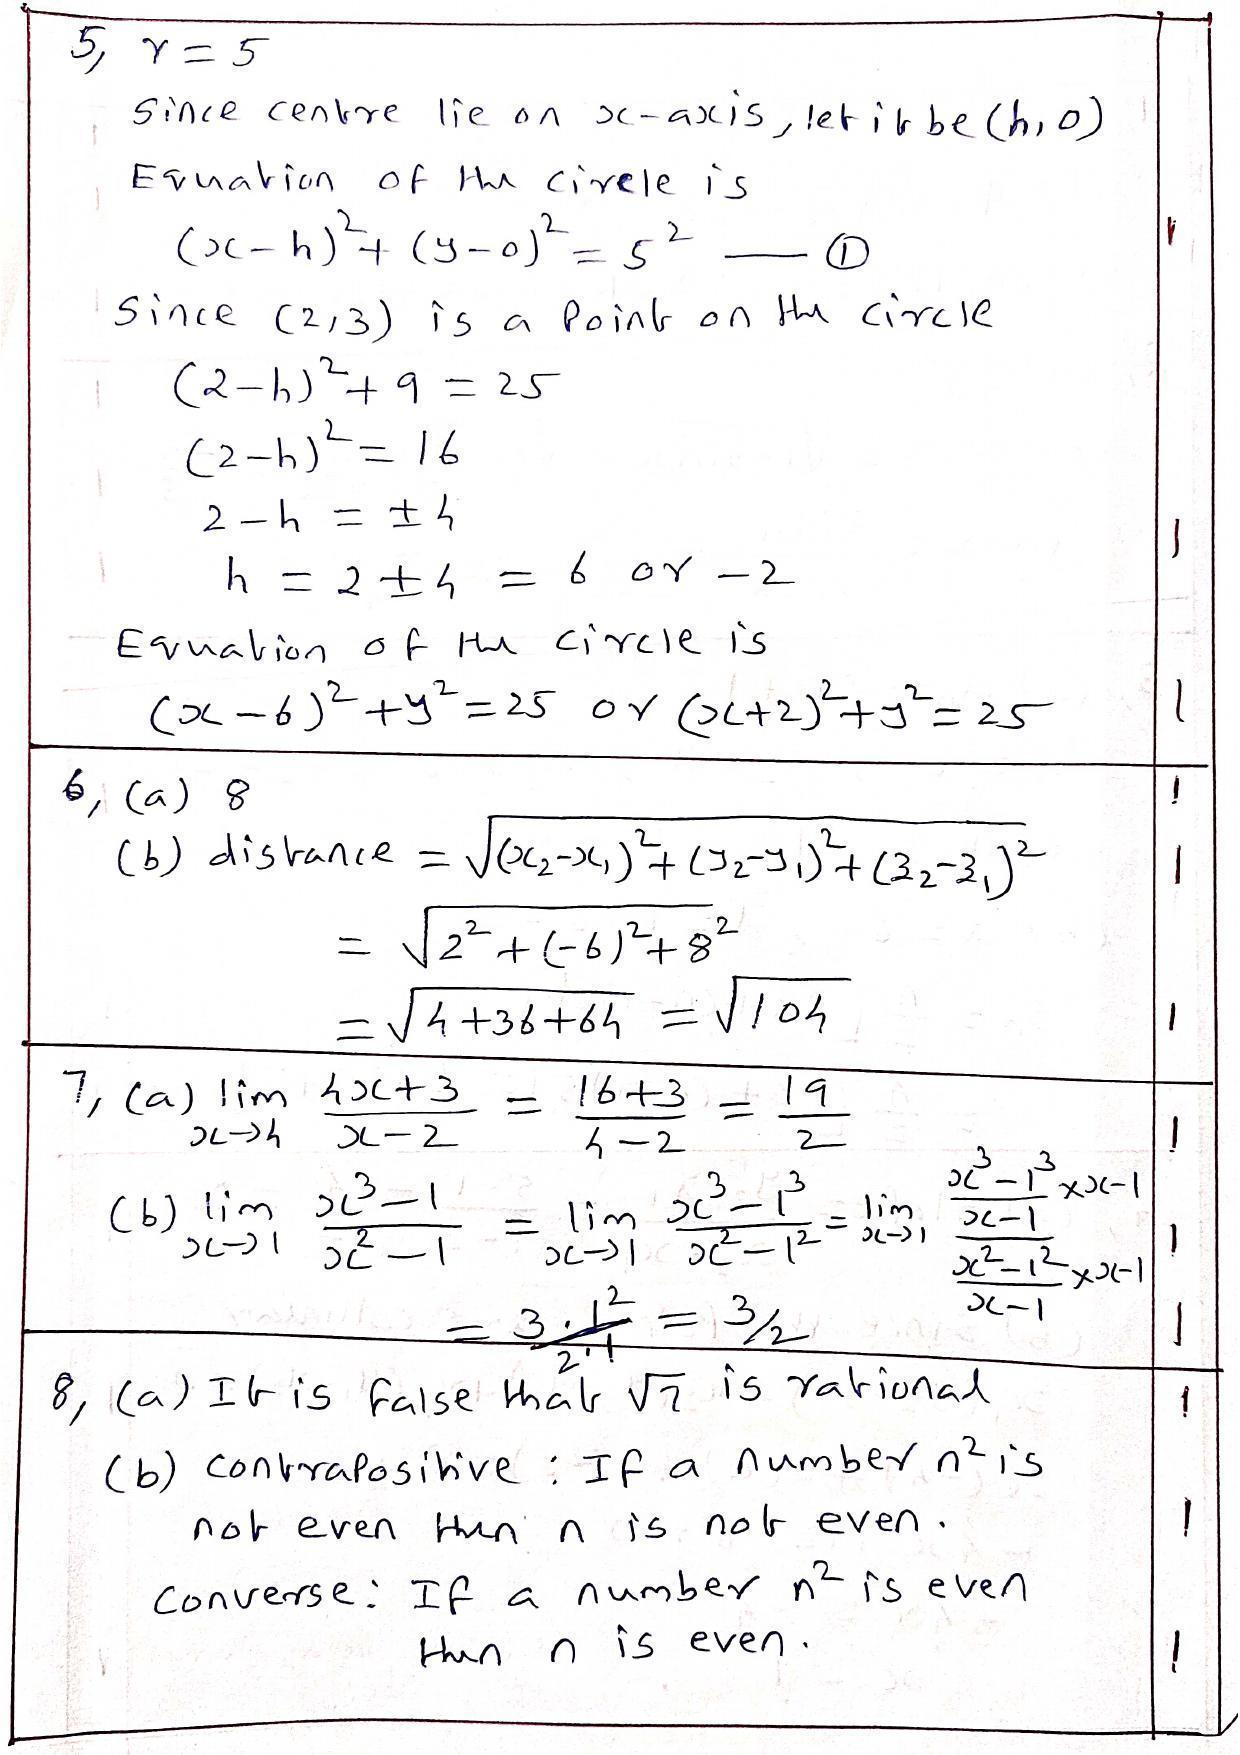 5, r = 5
Since centre lie on x-axis, let it be (h, 0)
Equation of the circle is
(x-h)² + (y-0)² = 5² — ①
Since (2,3) is a Point on the circle
(2-h)² + 9 = 25
(2-h)² = 16
2-h = ±4
h = 2±4 = 6 or -2
Equation of the circle is
(x-6)² + y² = 25 or (x+2)² + y² = 25
6, (a) 8
(b) distance = √((x₂-x₁)² + (y₂-y₁)² + (z₂-z₁)²)
= √(2² + (-6)² + 8²)
= √(4+36+64) = √104
7, (a) lim x→4 (4x+3)/(x-2) = (16+3)/(4-2) = 19/2
(b) lim x→1 (x³-1)/(x²-1) = lim x→1 (x³-1³)/(x²-1²) = lim x→1 ((x³-1³)/(x-1) × x-1)/((x²-1²)/(x-1) × x-1)
= 3·1²/2·1 = 3/2
8, (a) It is false that √7 is rational
(b) contrapositive : If a number n² is
not even then n is not even.
converse: If a number n² is even
then n is even.